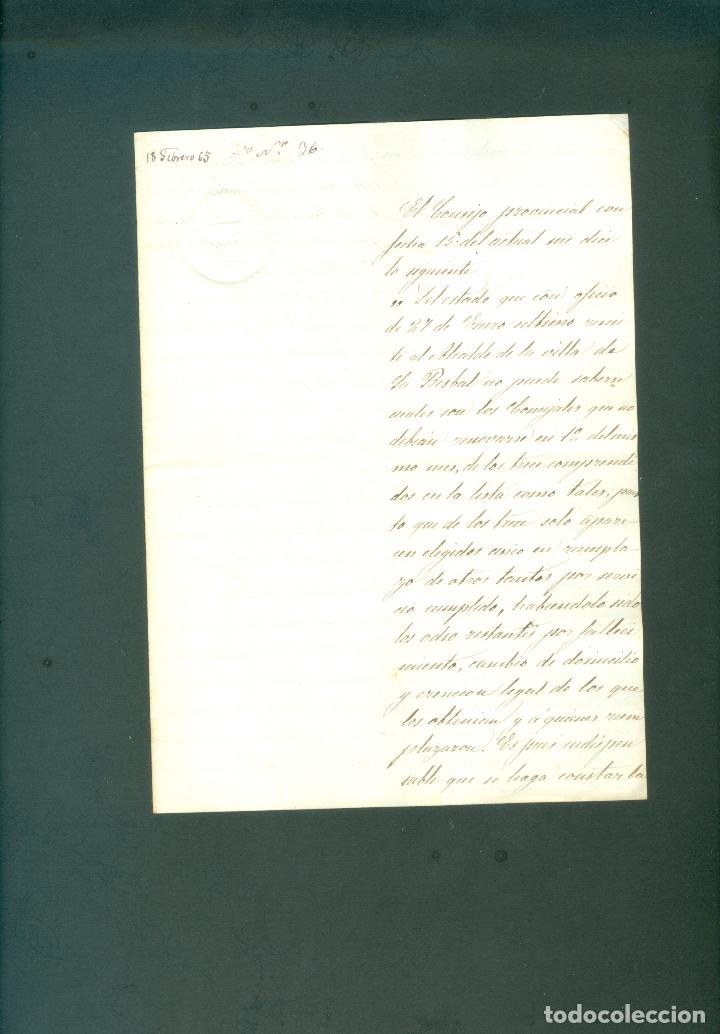 18 Febrero 65 Nº 36.
El Consejo provincial con
fecha 15 del actual me dice
lo siguiente
„ Del estado que con oficio
de 27 de Enero ultimo remi
te al Alcalde de la villa de
La Bisbal no puede saberse
cuales son los Concejales que no
debian renovarse en 1º del mis
mo mes, de los trece comprendi
dos en la lista como tales, pues
to que de los trece solo apare
cen elegidos cinco en rempla
zo de otros tantos por servi
cio cumplido, habiendolo sido
los ocho restantes por falleci
miento, cambio de domicilio
y exencion legal de los que
los obtenian y á quienes rem
plazaron. Es pues indispen
sable que se haga constar la
todocoleccion
todocoleccion.net